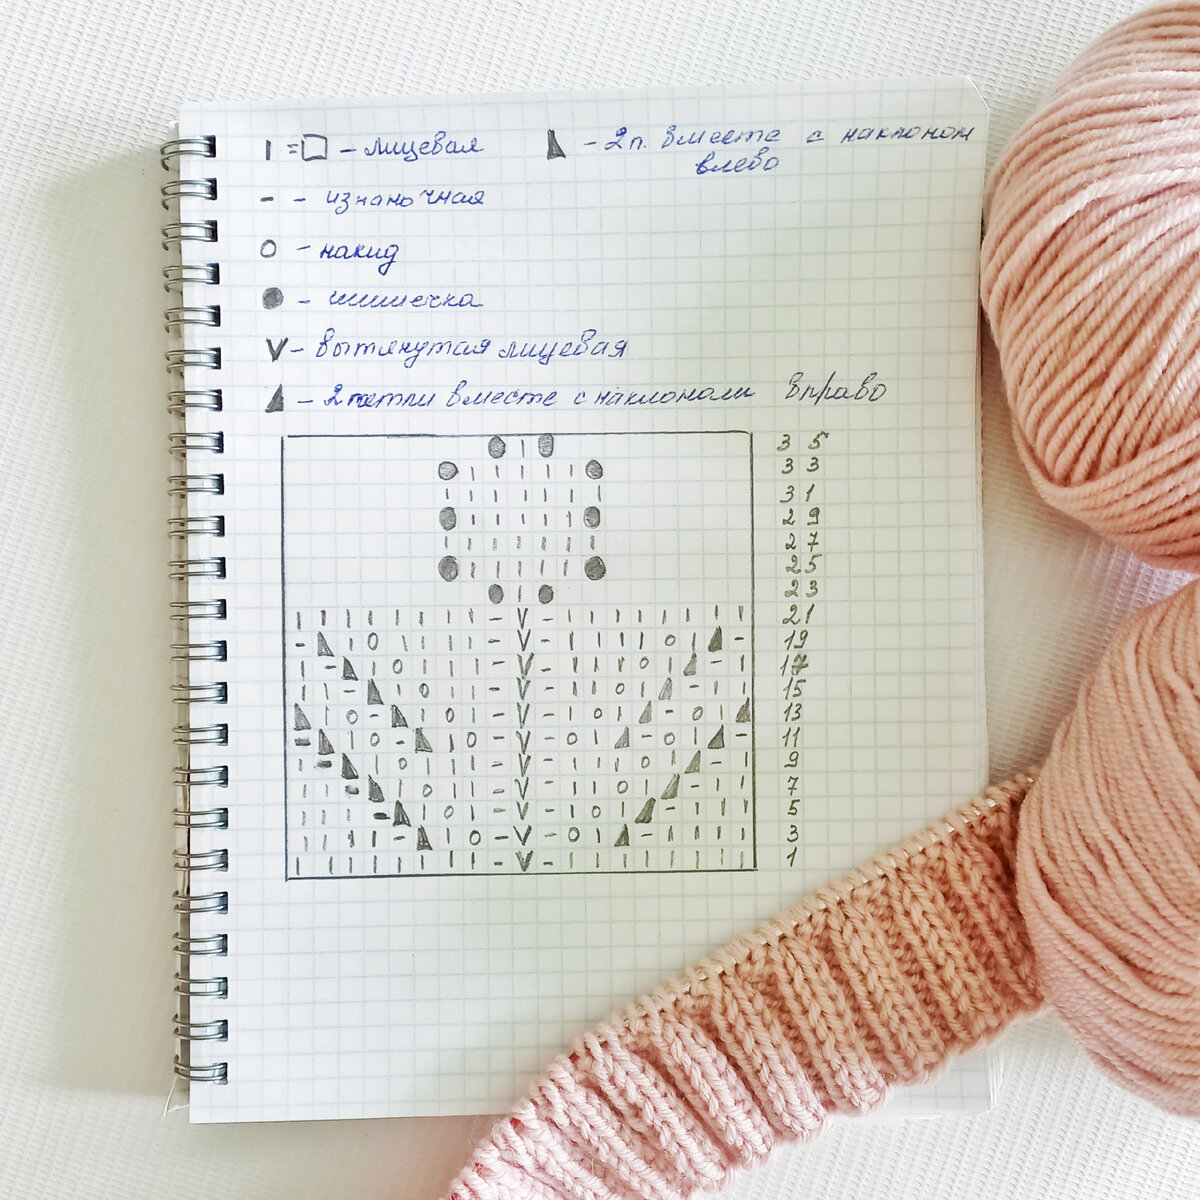 I = □ - лицевая
◣ - 2 п. вместе с наклоном
влево
- - изнаночная
o - накид
● - шишечка
V - вытянутая лицевая
◢ - 2 петли вместе с наклоном вправо
● I ● 35
● I I I I I ● 33
I I I I I I I 31
● I I I I I ● 29
I I I I I I I 27
● I I I I I ● 25
● I ● 23
I I I I I I I I - V - I I I I I I I I 21
- ◣ I o I I I I - V - I I I I o I ◢ - 19
I - ◣ I o I I I - V - I I I o I ◢ - I 17
I I - ◣ I o I I - V - I I o I ◢ - I I 15
◣ I o - ◣ I o I - V - I o I ◢ - o I ◢ 13
- ◣ I o - ◣ I o - V - o I ◢ - o I ◢ - 11
I - ◣ I o I I I - V - I I I o I ◢ - I 9
I I - ◣ I o I I - V - I I o I ◢ - I I 7
I I I - ◣ I o I - V - I o I ◢ - I I I 5
I I I I - ◣ I o - V - o I ◢ - I I I I 3
I I I I I I I I - V - I I I I I I I I 1